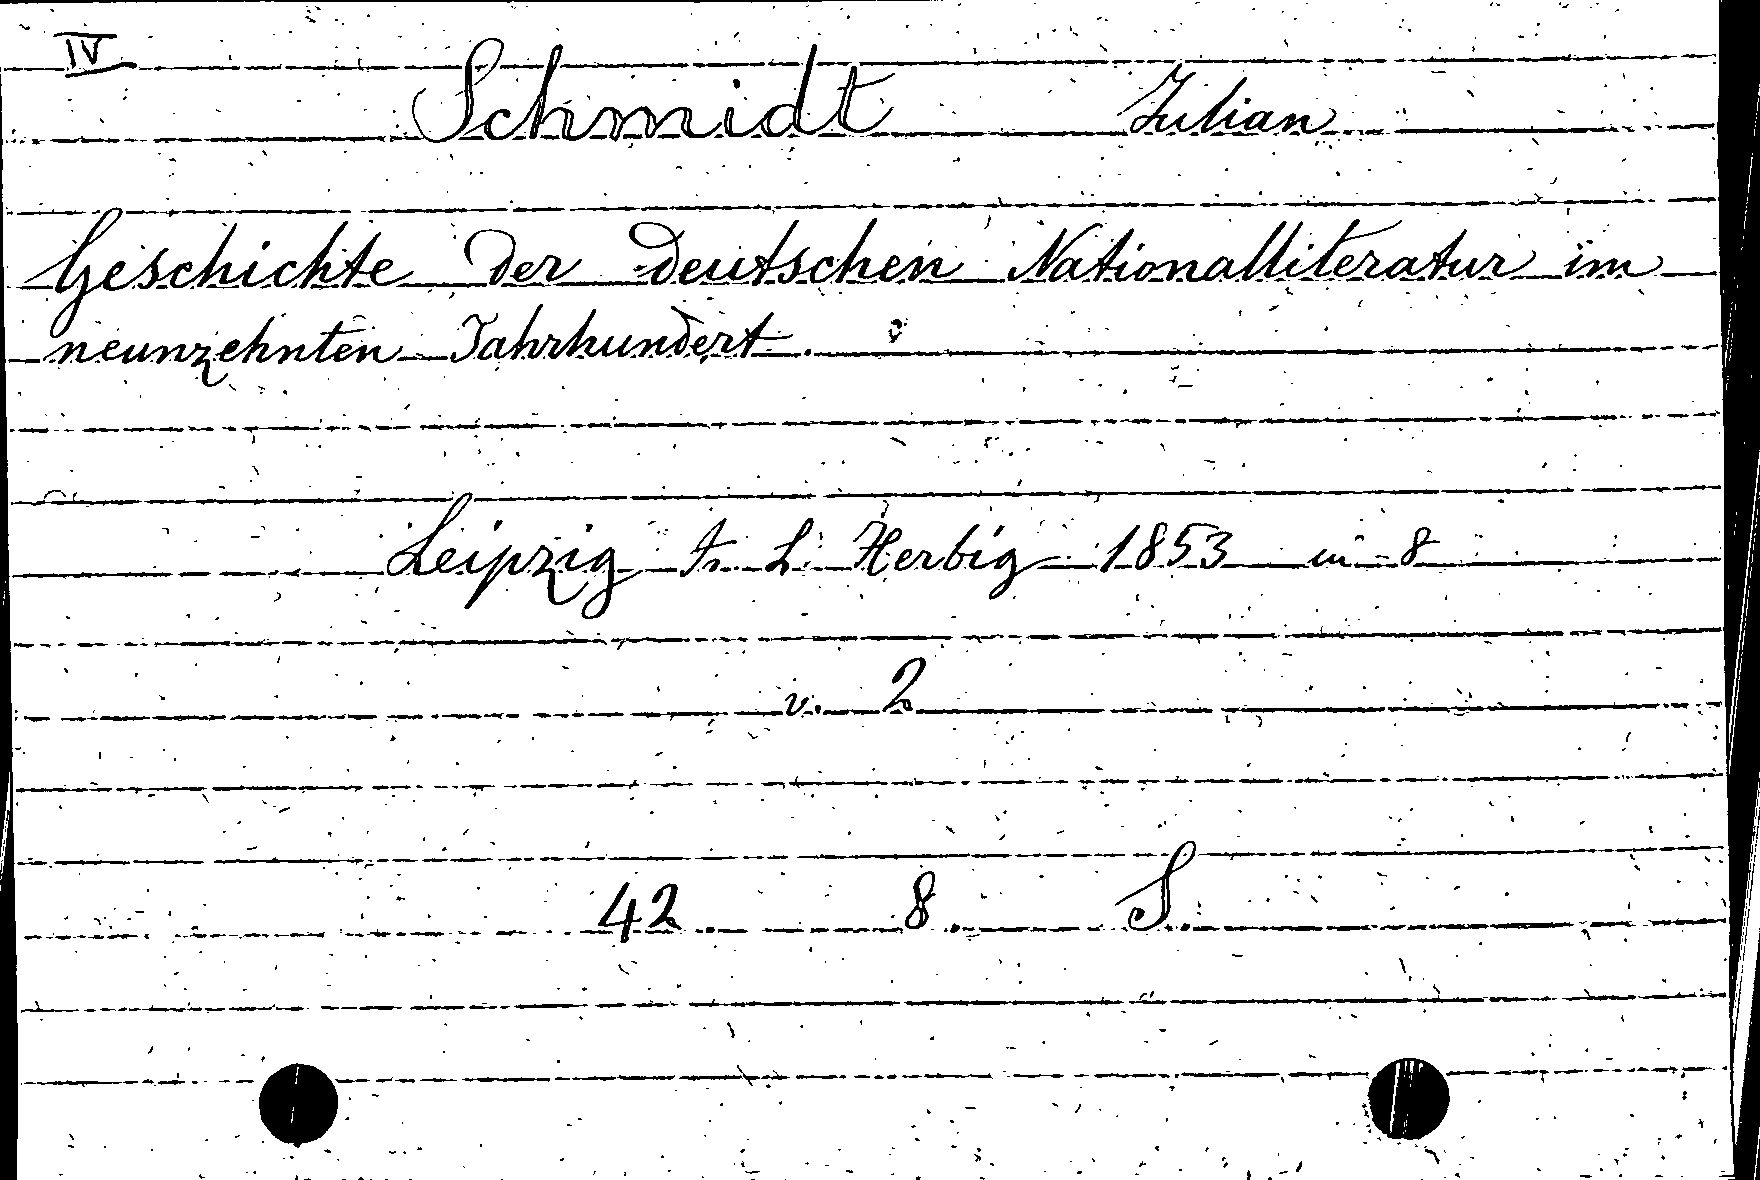 IV
Schmidt Julian
Geschichte der deutschen Nationalliteratur im
neunzehnten Jahrhundert.
Leipzig Fr. L. Herbig 1853 in 8
v. 2
42. 8. S.